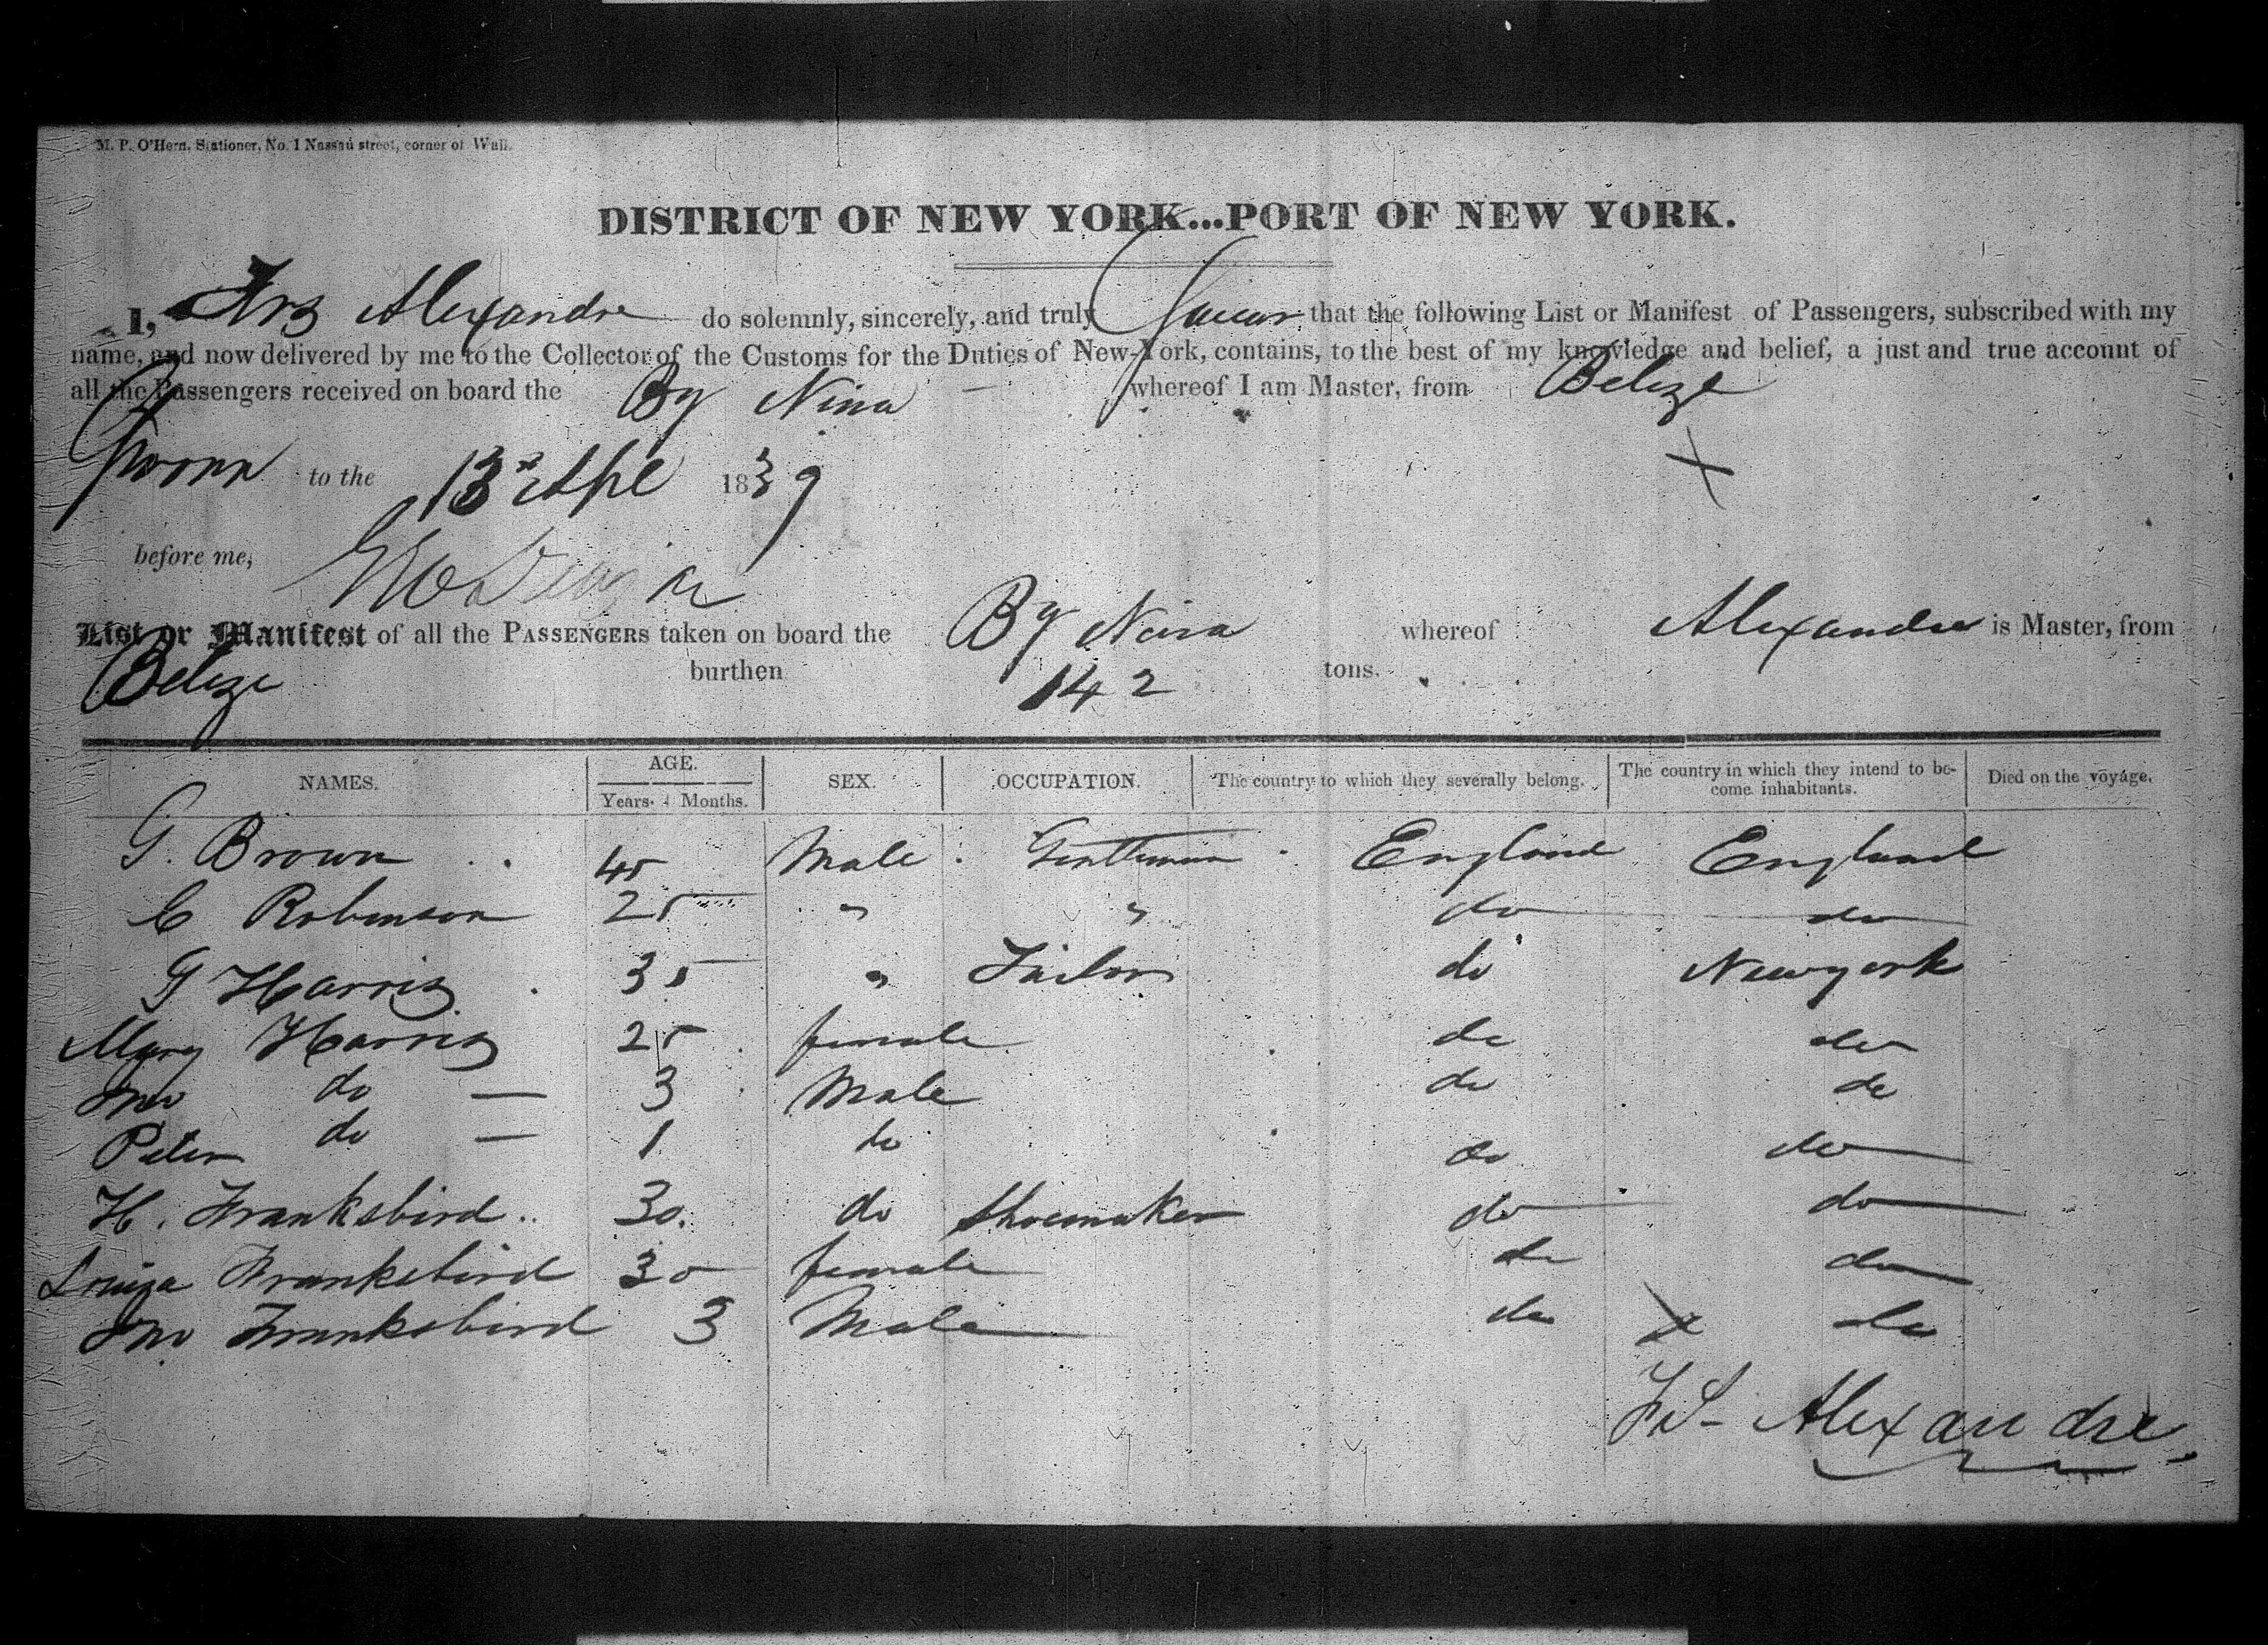 M. P. O'Hern, Stationer, No. 1 Nassau street, corner of Wall.
DISTRICT OF NEW YORK...PORT OF NEW YORK.
I, Frs Alexandre do solemnly, sincerely, and truly Swear that the following List or Manifest of Passengers, subscribed with my
name, and now delivered by me to the Collector of the Customs for the Duties of New-York, contains, to the best of my knowledge and belief, a just and true account of
all the Passengers received on board the Bg Nina whereof I am Master, from Belize
Sworn to the 13th Apl 1839
before me,
List or Manifest of all the PASSENGERS taken on board the Bg Nina whereof Alexandre is Master, from
Belize burthen 142 tons.
NAMES. AGE. Years. Months. SEX. OCCUPATION. The country to which they severally belong. The country in which they intend to become inhabitants. Died on the voyage.
G. Brown 45 Male Gentleman England England
C Robinson 25 " " do do
G Harris 35 " Tailor do Newyork
Mary Harris 25 female do do
Jno do — 3 Male do do
Peter do — 1 do do do
H. Franksbird 30. do Shoemaker do do
Louiza Franksbird 30 female do do
Jno Franksbird 3 Male do X do
F S- Alexandre